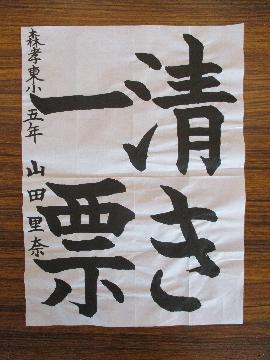 清き
一票
森孝東小 五年 山田里奈